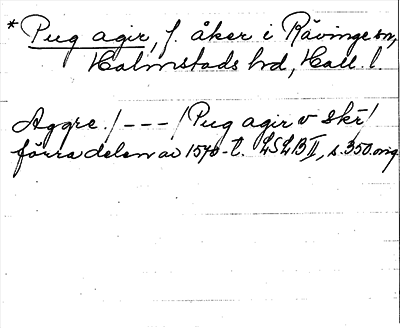 * Pug agir, f. åker i Rävinge sn,
Halmstads hd, Hall. l.
Aggre. /---/ Pug agir v skr/
förra delen av 1540-t. LSLB II, s. 350. orig